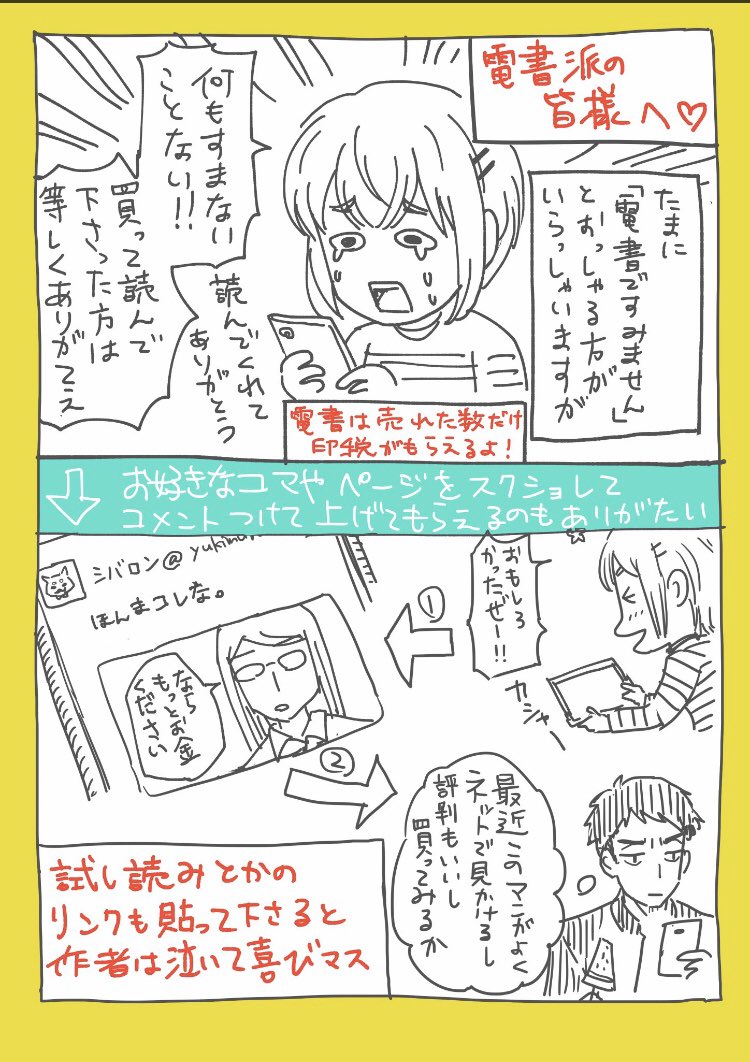 電書派の
皆様へ♡
たまに
「電書ですみません」
とおっしゃる方が
いらっしゃいますが
何もすまない
ことない!!
読んでくれて
ありがとう
買って読んで
下さった方は
等しくありがてえ
電書は売れた数だけ
印税がもらえるよ!
お好きなコマやページをスクショして
コメントつけて上げてもらえるのもありがたい
おもしろ
かったぜー!!
カシャー
①
シバロン@yukimu
ほんまコレな。
なら
もっとお金
ください
②
最近このマンガよく
ネットで見かけるし
評判もいいし
買ってみるか
試し読みとかの
リンクも貼って下さると
作者は泣いて喜びマス